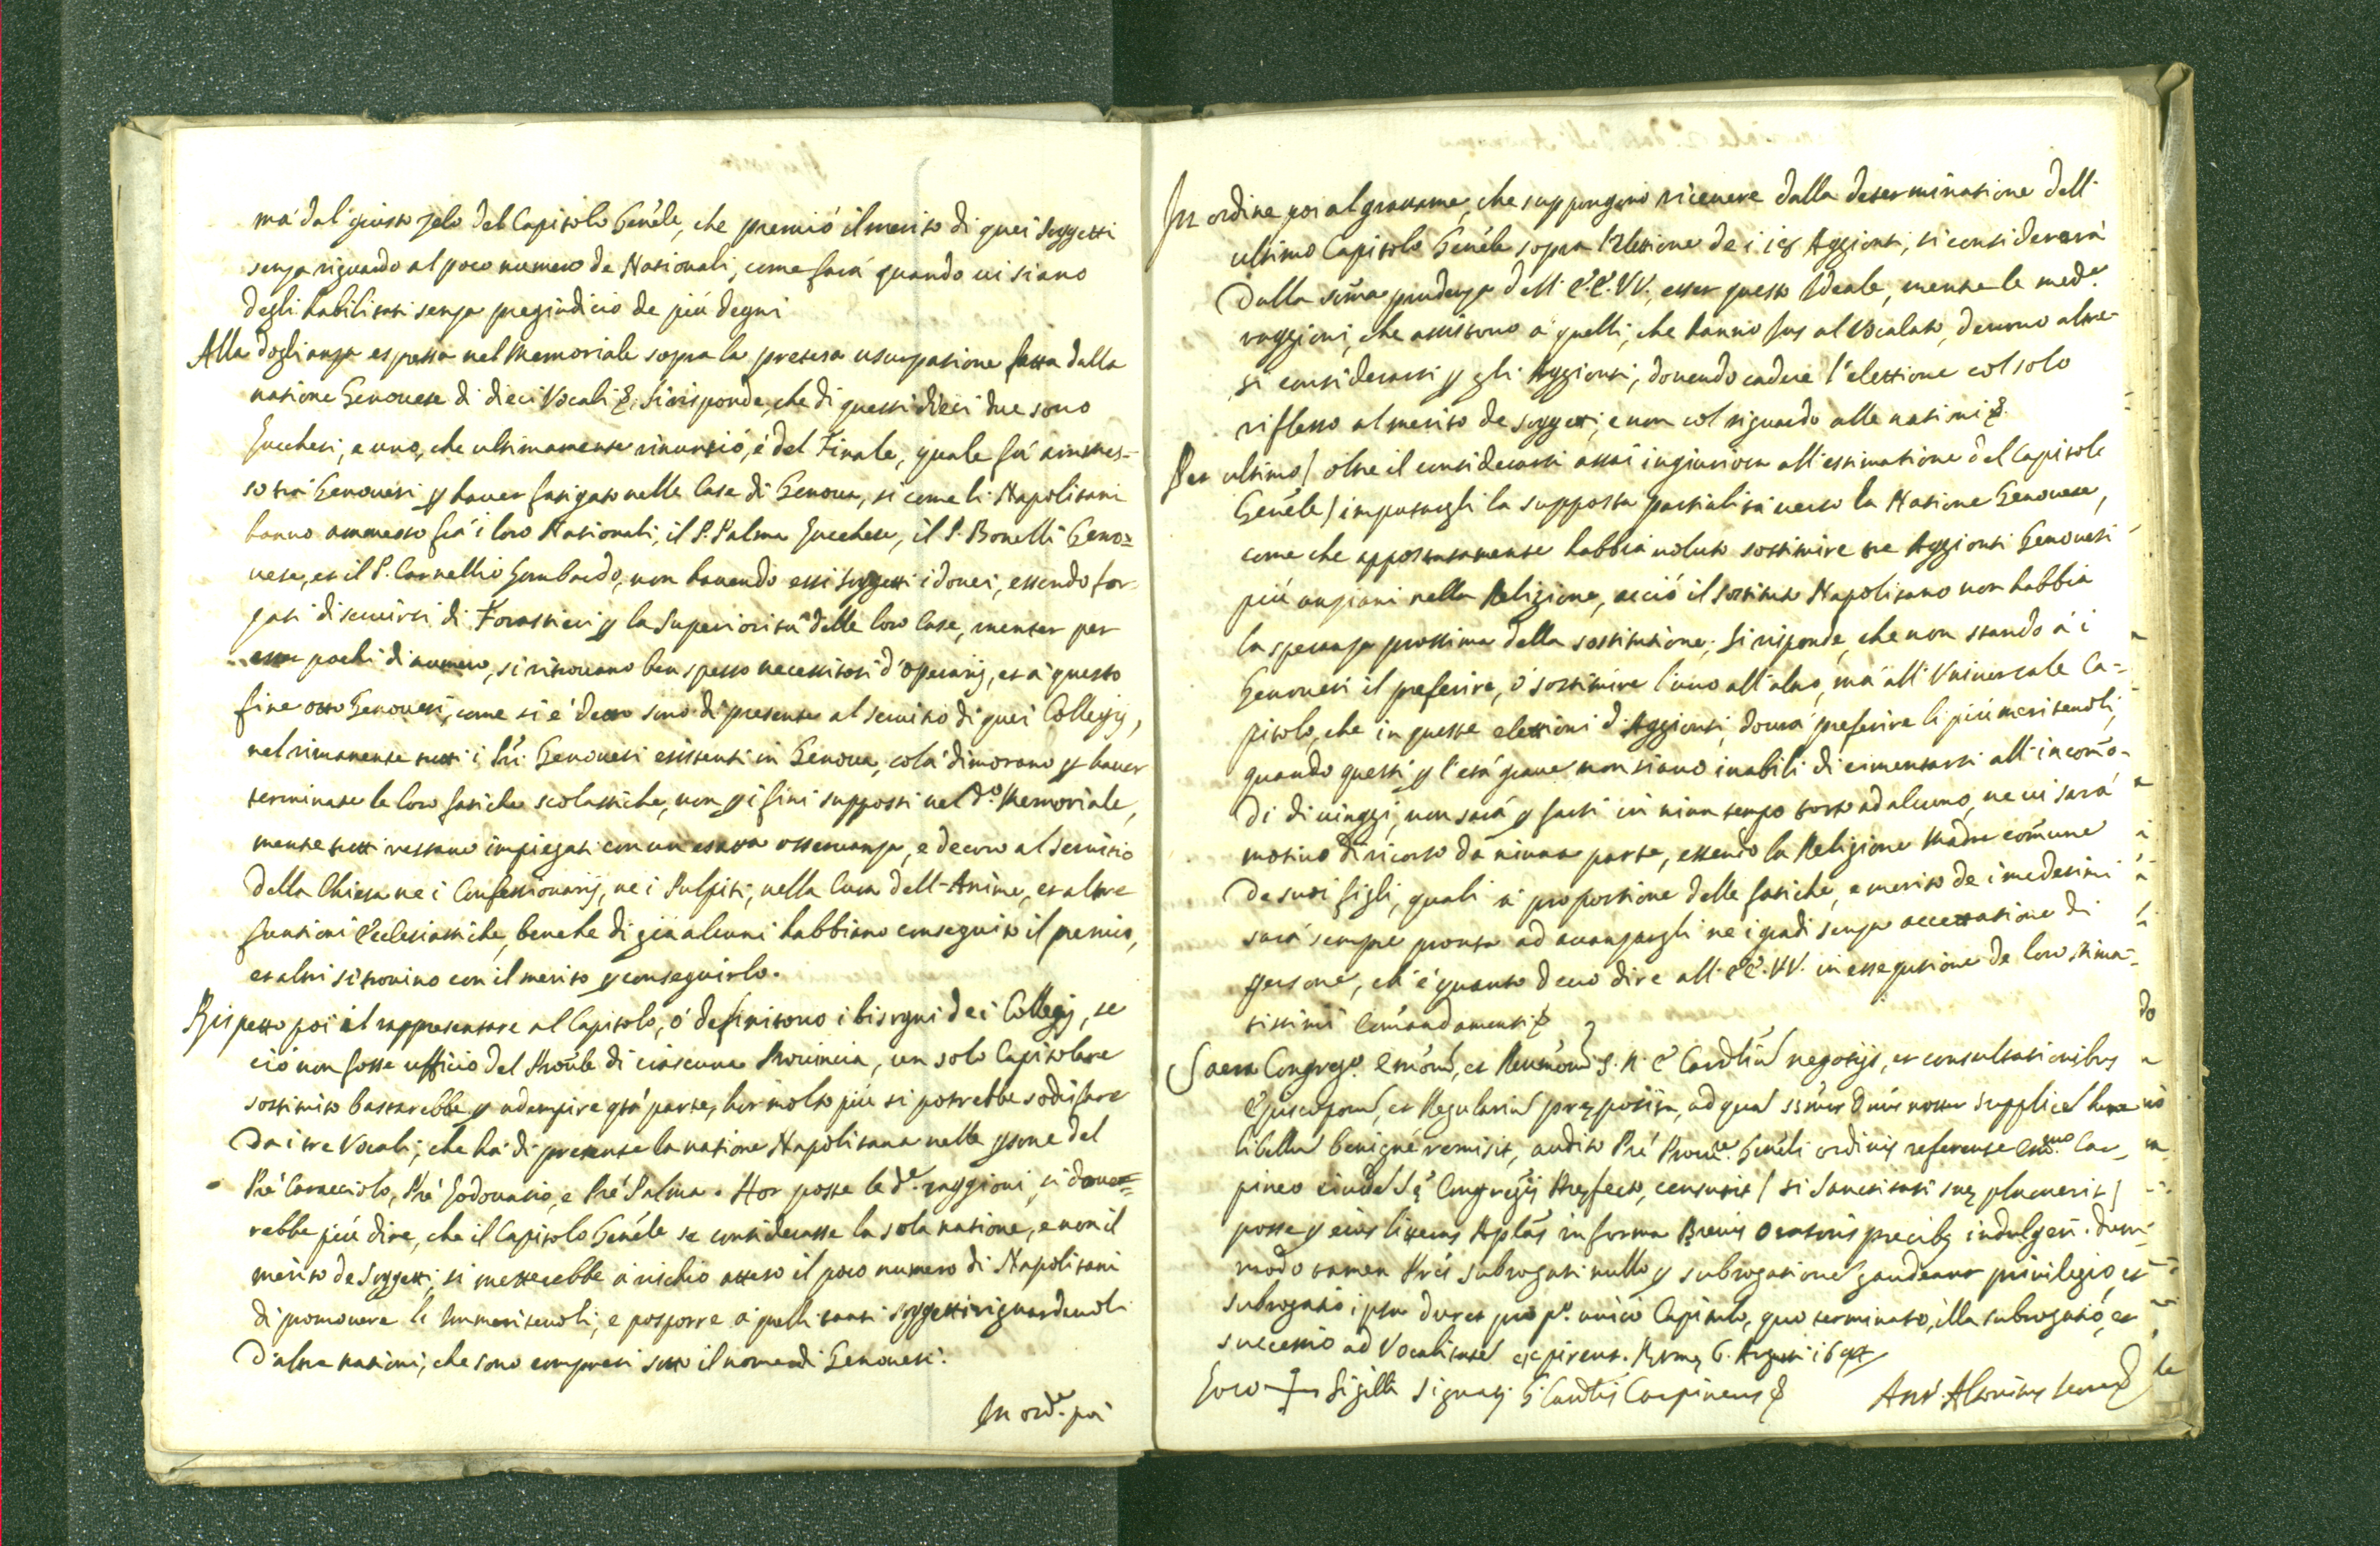 ma dal giusto zelo del Capitolo Gen̄le, che premiò il merito di quei soggetti
senza riguardo al poco numero de Nationali, come farà quando ui siano
degli habilitati senza pregiudicio de più degni
Alla doglianza espressa nel Memoriale sopra la pretesa usurpatione fatta dalla
natione Genouese di dieci Vocali &. Si risponde, che di questi dieci due sono
Lucchesi, e uno, che ultimamente rinuntiò, è del Finale, quale fù ammes-
so trà Genouesi p hauer fatigato nelle Case di Genoua, si come li Napolitani
hanno ammesso frà i loro Nationali, il P. Palma Lucchese, il P. Bonelli Geno=
uese, et il P. Cornelio Lombardo, non hauendo essi soggetti idonei, essendo for-
zati di seruirsi di Forastieri p la Superiorità delle loro Case, mentre per
esser pochi di numero, si ritrouano ben spesso necessitosi d'operarij, et a questo
fine otto Genouesi, come si è detto sono di presente al seruitio di quei Collegij,
nel rimanente tutti i Pri Genouesi esistenti in Genoua, colà dimorano p hauer
terminate le loro fatiche scolastiche, non p i fini supposti nel d.º Memoriale,
mentre tutti restano impiegati con un esatta osseruanza, e decoro al seruitio
della Chiesa ne i Confessionarij, ne i Pulpiti, nella Cura dell'Anime, et altre
funtioni Ecclesiastiche, benche di già alcuni habbiano conseguito il premio,
et altri si trouino con il merito p conseguirlo.
Rispetto poi il rappresentare al Capitolo, ò definitorio i bisogni dei Collegij, se
ciò non fosse ufficio del Prou̅le di ciascuna Prouincia, un solo Capitolare
sostituto bastarebbe p adempire q̄sta parte, hor molto più si potrebbe sodisfare
da i tre Vocali, che hà di presente la natione Napolitana nelle p̄sone del
Prē Caracciolo, Prē Lodouasio, e Prē Palma. Hor posse le d.e raggioni, si douer=
rebbe più dire, che il Capitolo Gen̄le se considerasse la sola natione, e non il
merito de Soggetti, si metterebbe à rischio atteso il poco numero di Napolitani
di promouere li Immeriteuoli, e posporre à quelli tanti soggetti riguardeuoli
d'altre nationi, che sono compresi sotto il nome di Genouesi.
In ord.e poi
In ordine poi al grauame, che suppongono riceuere dalla determinatione dell'
ultimo Capitolo Gen̄le sopra l'elettione de i Aggionti, si considererà
dalla som̄a prudenza dell'E.E.VV., esser questo Ideale, mentre le med.e
raggioni, che assistono à quelli, che hanno Jus al Vocalato, deuono altre-
si considerarsi p gli Aggionti, douendo cadere l'elettione col solo
riflesso al merito de soggetti, e non col riguardo alle nationi &.
Per ultimo / oltre il considerarsi assai ingiuriosa all'estimatione del Capitolo
Gen̄le / imputargli la supposta partialità uerso la Natione Genouese,
come che appostatamente habbia uoluto sostituire tre Aggionti Genouesi
più anziani nella Religione, acciò il sostituto Napolitano non habbia
la speranza prossima della sostitutione; Si risponde, che non stando à i
Genouesi il preferire, ò sostituire l'uno all'altro, mà all'Vniuersale Ca=
pitolo, che in queste elettioni d'Aggionti, dourà preferire li più meriteuoli,
quando questi p l'età graue non siano inabili di cimentarsi all'incom̄o-
di di uiaggi, non sarà p farsi in niun tempo torto ad alcuno, ne ui sarà
motiuo di ricorso da niuna parte, essendo la Religione Madre com̄une
de suoi figli, quali à proportione delle fatiche, e merito de i medesimi
sarà sempre pronta ad auanzargli ne i gradi senza accettatione di
persone, ch'è quanto deuo dire all'EE.VV. in essegutione de loro stima-
tissimi Com̄andamenti &
Sacra Congreg.º Em̄orū, et Reu̅mōrū S.R.E. Cardliū negotijs, et consultationibus
Episcoporū, et Regulariū pręposita, ad quā SS̄mus Dn̄us noster supplicē hunc
libellū benignè remisit, audito Prē Procu.re Gen̄li ordinis referente Em̄o Car-
pineo eiusdē Sę Congregis Pręfecto, censuit / si Sanctitati suę placuerit /
posse p eius litteras Ap̄lās in forma Breuis Oratoris precibq indulgeri. dum-
modo tamen Pr̄es subrogati nullo p subrogationē gaudeant priuilegio, et
subrogatio ipsa duret pro p.º unico Capitulo, quo terminato, illa subrogatio, et
successio ad Vocalitatē expirent. Romę 6. Augusti
Loco + Sigilli Signat. G. Cardlis Carpineus &